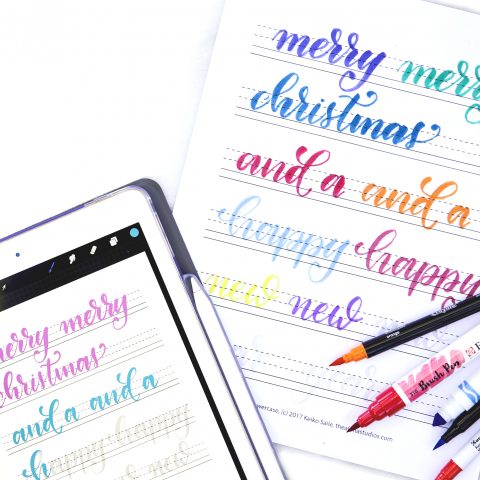 merry merry
christmas
and a and a
happy happy
new new
merry merry
christmas
and a and a
happy happy
new new
(c) 2017 Keiko Saile,
THE Brush Pen